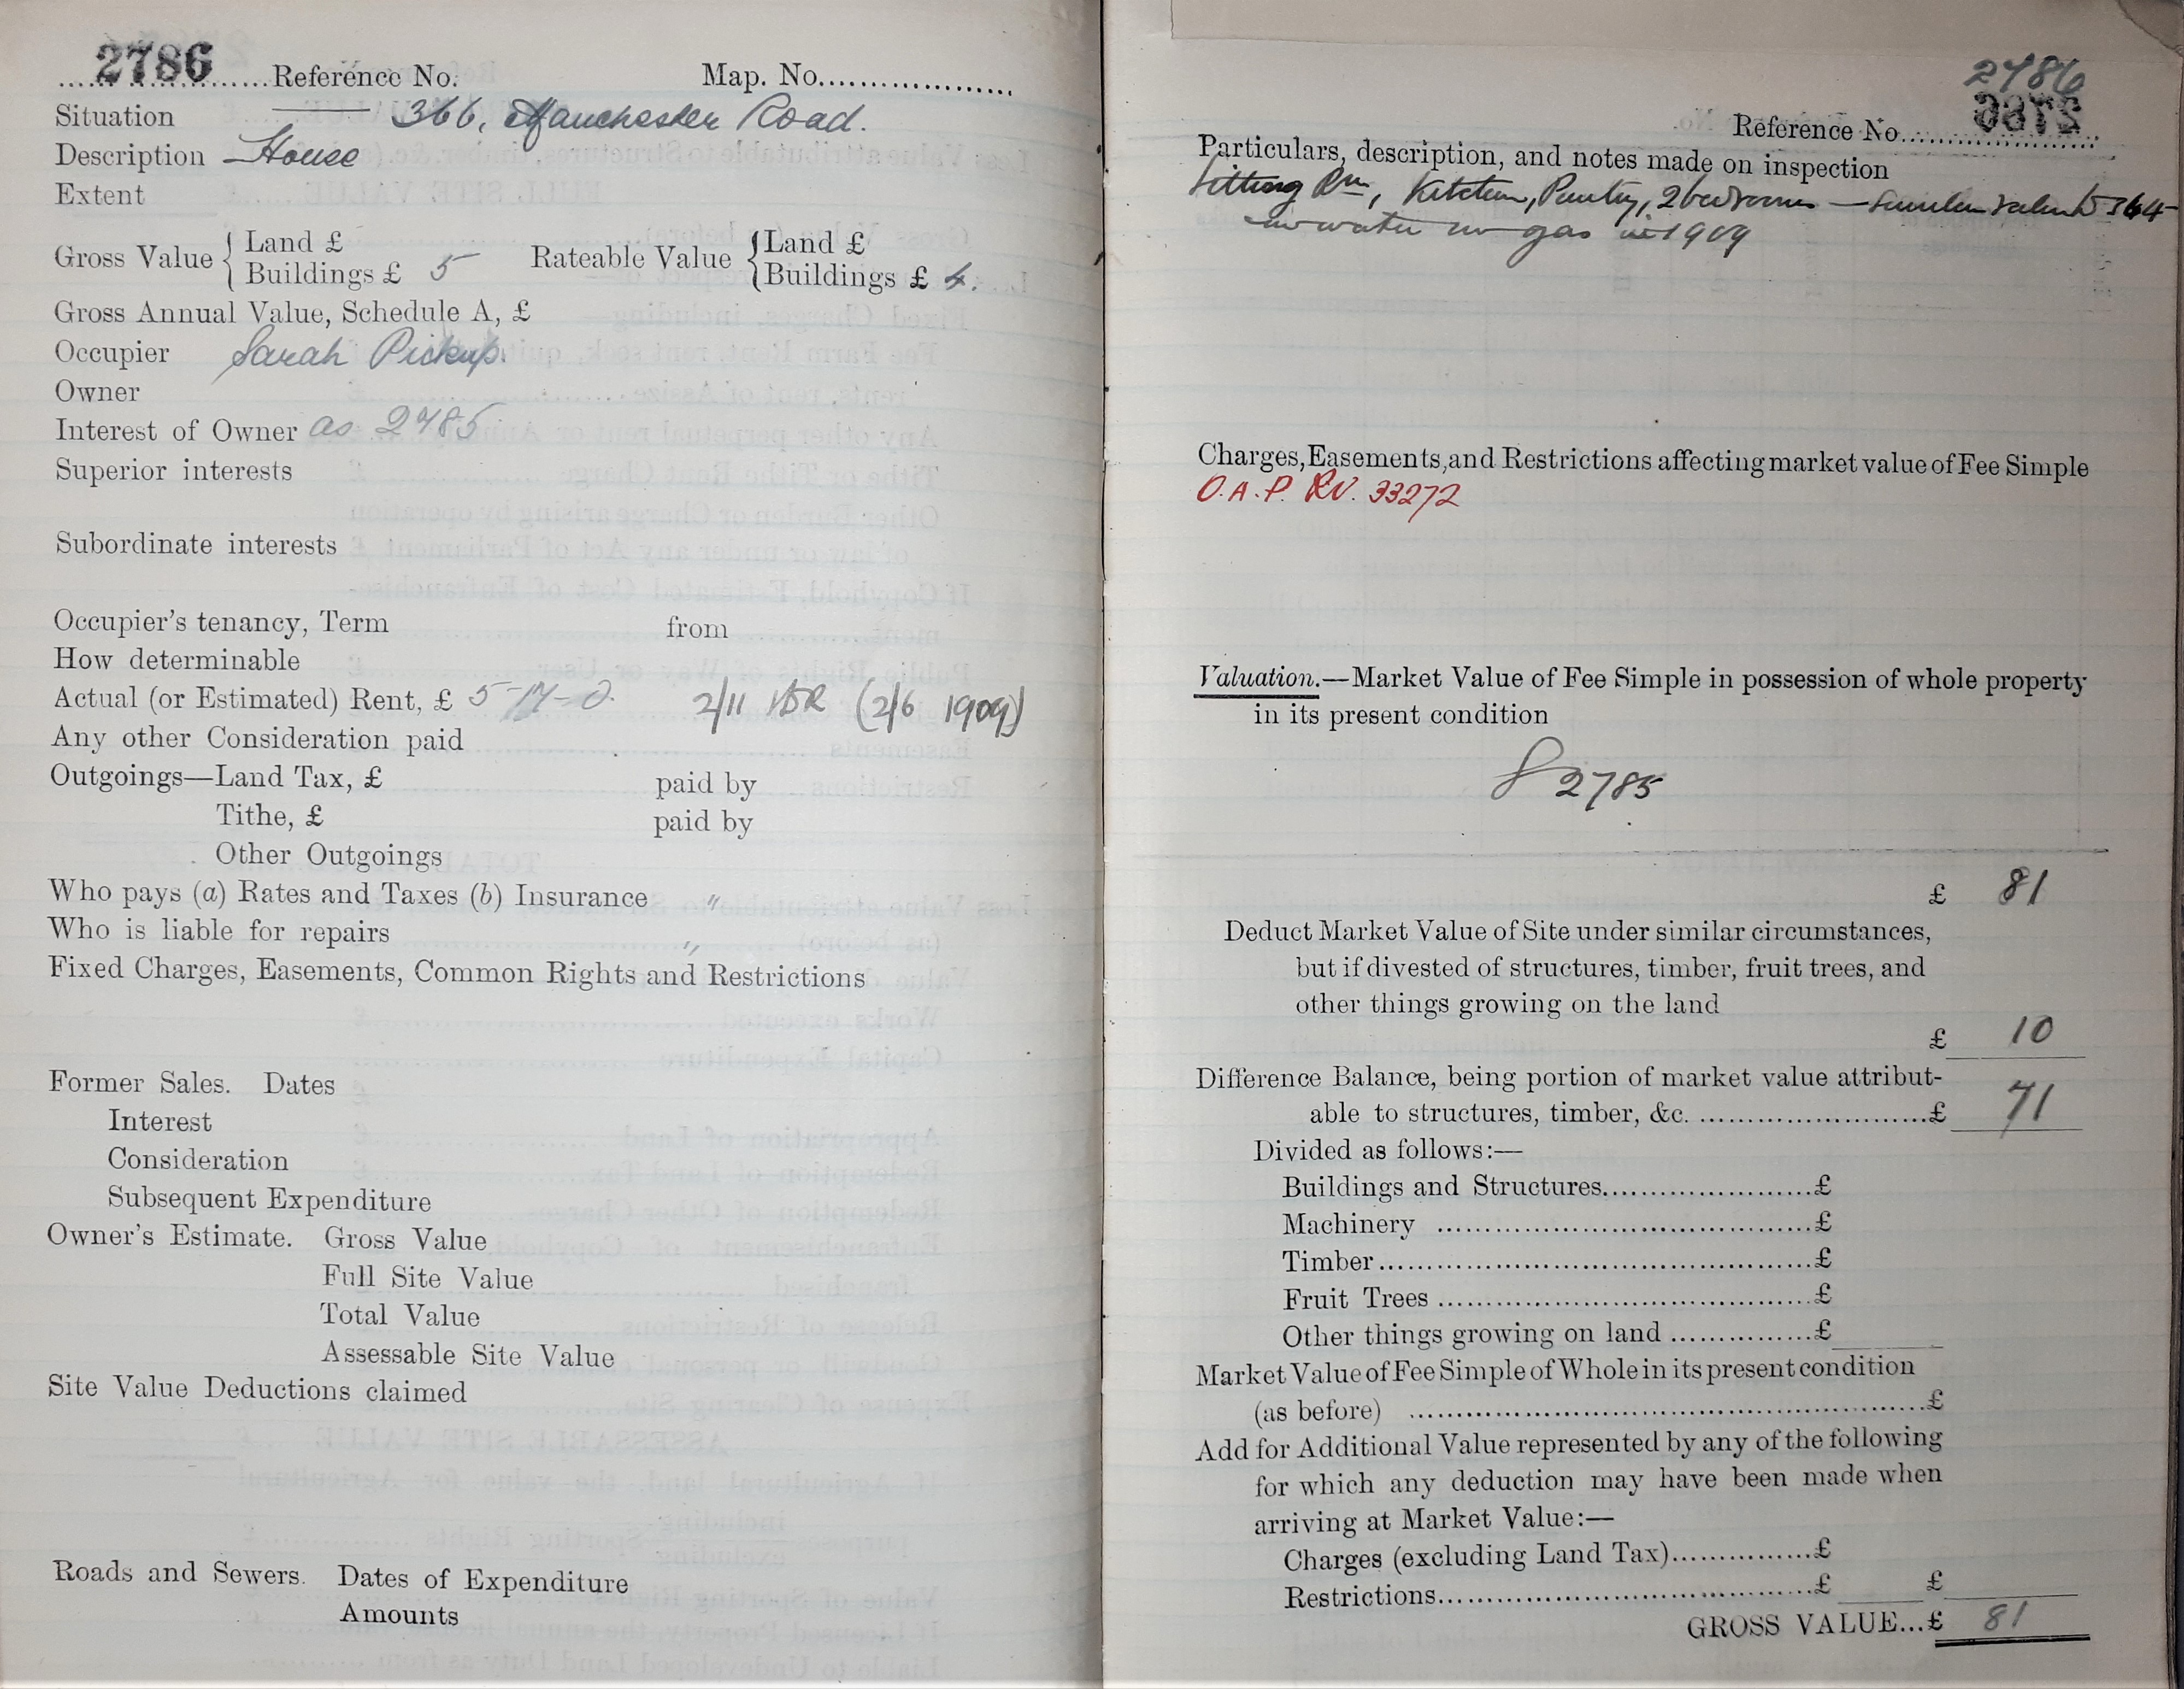 2786 Reference No. Map. No.
Situation 366, Manchester Road.
Description House
Extent
Gross Value { Land £
Buildings £ 5
Rateable Value { Land £
Buildings £ 4.
Gross Annual Value, Schedule A, £
Occupier Sarah Pickup.
Owner
Interest of Owner as 2785
Superior interests
Subordinate interests
Occupier's tenancy, Term from
How determinable
Actual (or Estimated) Rent, £ 5-17-0. 2/11 (2/6 1909)
Any other Consideration paid
Outgoings—Land Tax, £ paid by
Tithe, £ paid by
Other Outgoings
Who pays (a) Rates and Taxes (b) Insurance "
Who is liable for repairs "
Fixed Charges, Easements, Common Rights and Restrictions
Former Sales. Dates
Interest
Consideration
Subsequent Expenditure
Owner's Estimate. Gross Value
Full Site Value
Total Value
Assessable Site Value
Site Value Deductions claimed
Roads and Sewers. Dates of Expenditure
Amounts
2786
Reference No.
Particulars, description, and notes made on inspection
Sitting Rm, Kitchen, Pantry, 2 bedrooms — similar value to 364
no water no gas in 1909
Charges, Easements, and Restrictions affecting market value of Fee Simple
O.A.P. RV. 33272
Valuation.—Market Value of Fee Simple in possession of whole property
in its present condition
2785
£ 81
Deduct Market Value of Site under similar circumstances,
but if divested of structures, timber, fruit trees, and
other things growing on the land
£ 10
Difference Balance, being portion of market value attribut-
able to structures, timber, &c. £ 71
Divided as follows:—
Buildings and Structures £
Machinery £
Timber £
Fruit Trees £
Other things growing on land £
Market Value of Fee Simple of Whole in its present condition
(as before) £
Add for Additional Value represented by any of the following
for which any deduction may have been made when
arriving at Market Value:—
Charges (excluding Land Tax) £
Restrictions £ £
GROSS VALUE...£ 81